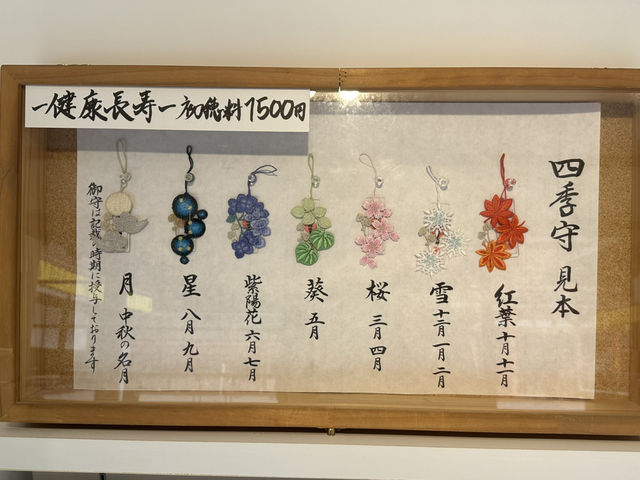 一健康長寿一 初穂料1500円
四季守 見本
紅葉 十月十一月
雪 十二月 一月 二月
桜 三月四月
葵 五月
紫陽花 六月七月
星 八月 九月
月 中秋の名月
御守は記載の時期に授与しております